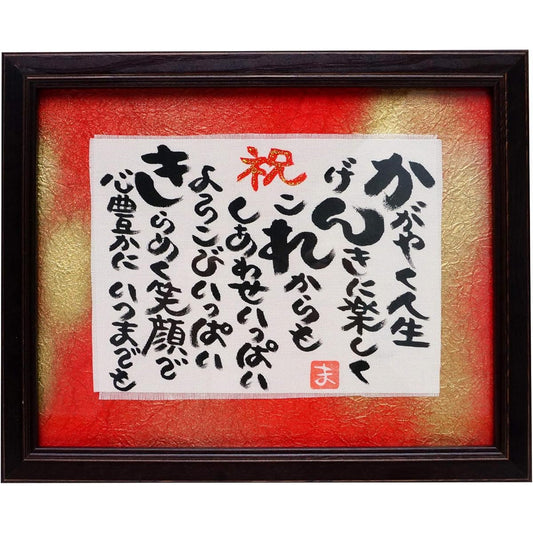 かがやく人生
げんきに楽しく
これからも
祝
しあわせいっぱい
よろこびいっぱい
きらめく笑顔で
心豊かに いつまでも
ま